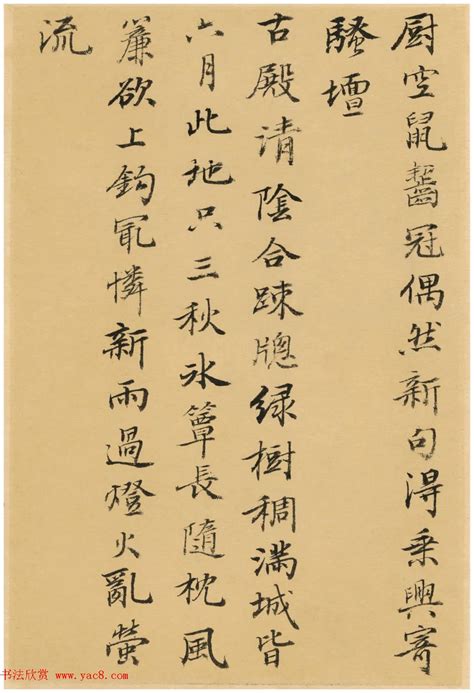 厨空鼠齧冠偶然新句得乘興寄
騷壇
古殿清陰合踈牕绿樹稠满城皆
六月此地只三秋氷簟長隨枕風
簾欲上鈎冣憐新雨過燈火亂螢
流
书法欣赏 www.yac8.com